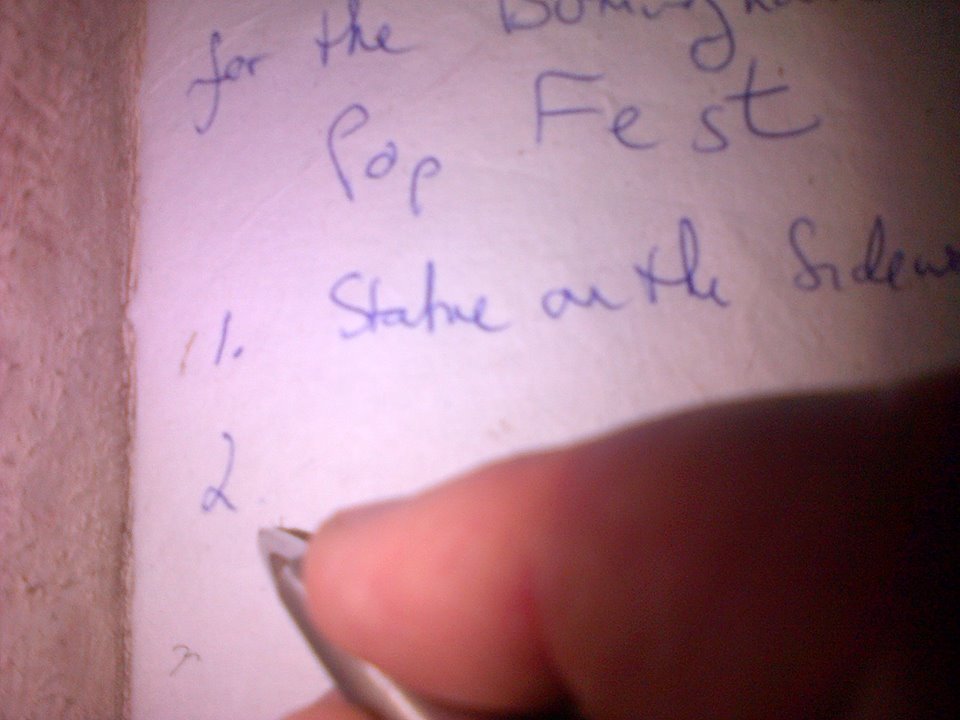 for the
Pop Fest
1. Statue on the Sidew
2.